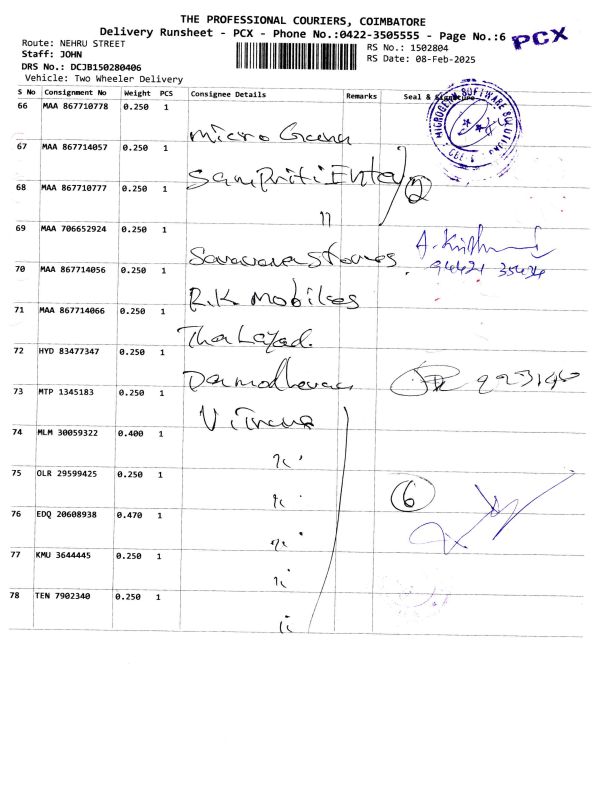 THE PROFESSIONAL COURIERS, COIMBATORE
Delivery Runsheet - PCX - Phone No.:0422-3505555 - Page No.:6 PCX
Route: NEHRU STREET
RS No.: 1502804
Staff: JOHN
RS Date: 08-Feb-2025
DRS No.: DCJB150280406
Vehicle: Two Wheeler Delivery
S No Consignment No Weight PCS Consignee Details Remarks Seal & Signature
66 MAA 867710778 0.250 1 Micro
MICROGENN SOFTWARE SOLUTIONS
67 MAA 867714057 0.250 1 Sampriti Enter
68 MAA 867710777 0.250 1 11 2
69 MAA 706652924 0.250 1 Saravana Stores
70 MAA 867714056 0.250 1 R.K Mobiles
71 MAA 867714066 0.250 1
72 HYD 83477347 0.250 1
73 MTP 1345183 0.250 1
74 MLM 30059322 0.400 1
75 OLR 29599425 0.250 1 6
76 EDQ 20608938 0.470 1
77 KMU 3644445 0.250 1
78 TEN 7902340 0.250 1